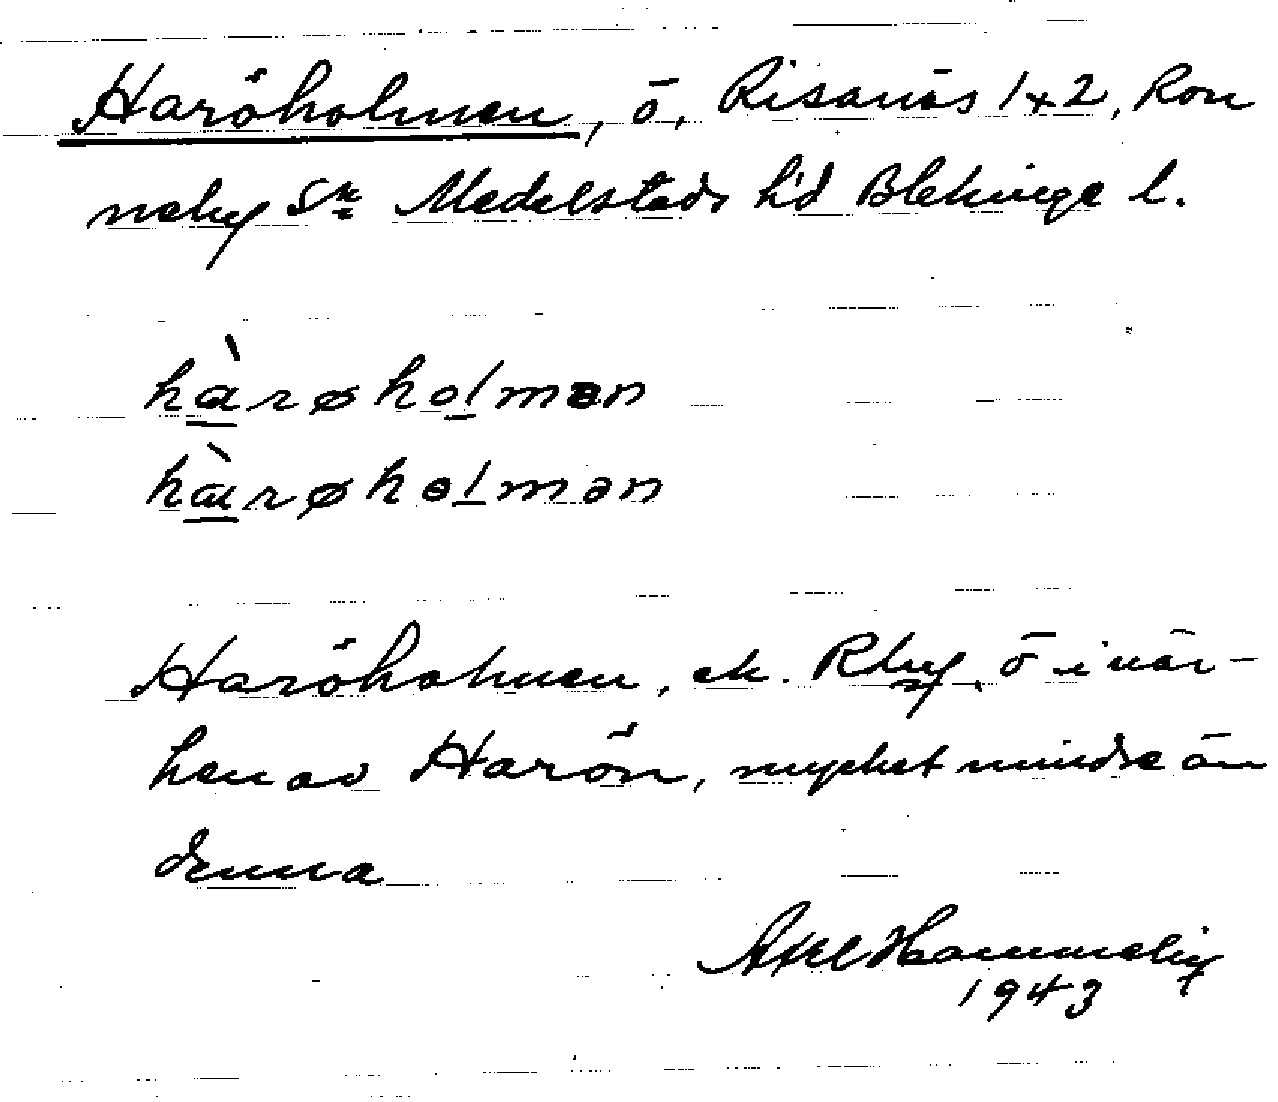 Haröholmen, ö, Risanäs 1+2, Ron
neby Sn Medelstads h'd Blekinge l.
hàrøholmən
hàrøholmən
Haröholmen, ek. Rby, ö i när-
heten av Harön, mycket mindre än
denna
Axel
1943